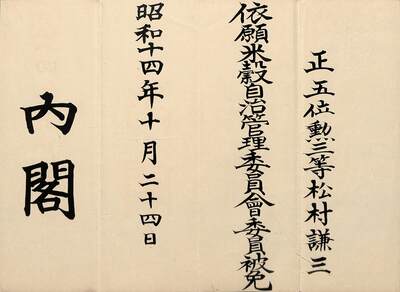 正五位勲三等松村謙三
依願米穀自治管理委員會委員被免
昭和十四年十月二十四日
内閣